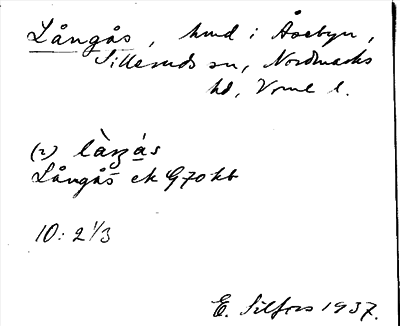 Långås, hmd i Åsebyn,
Silleruds sn, Nordmarks
hd, Vrml l.
(2) làŋás
Långås ek G70kb
10: 2 1/3
E. Silfors 1937.